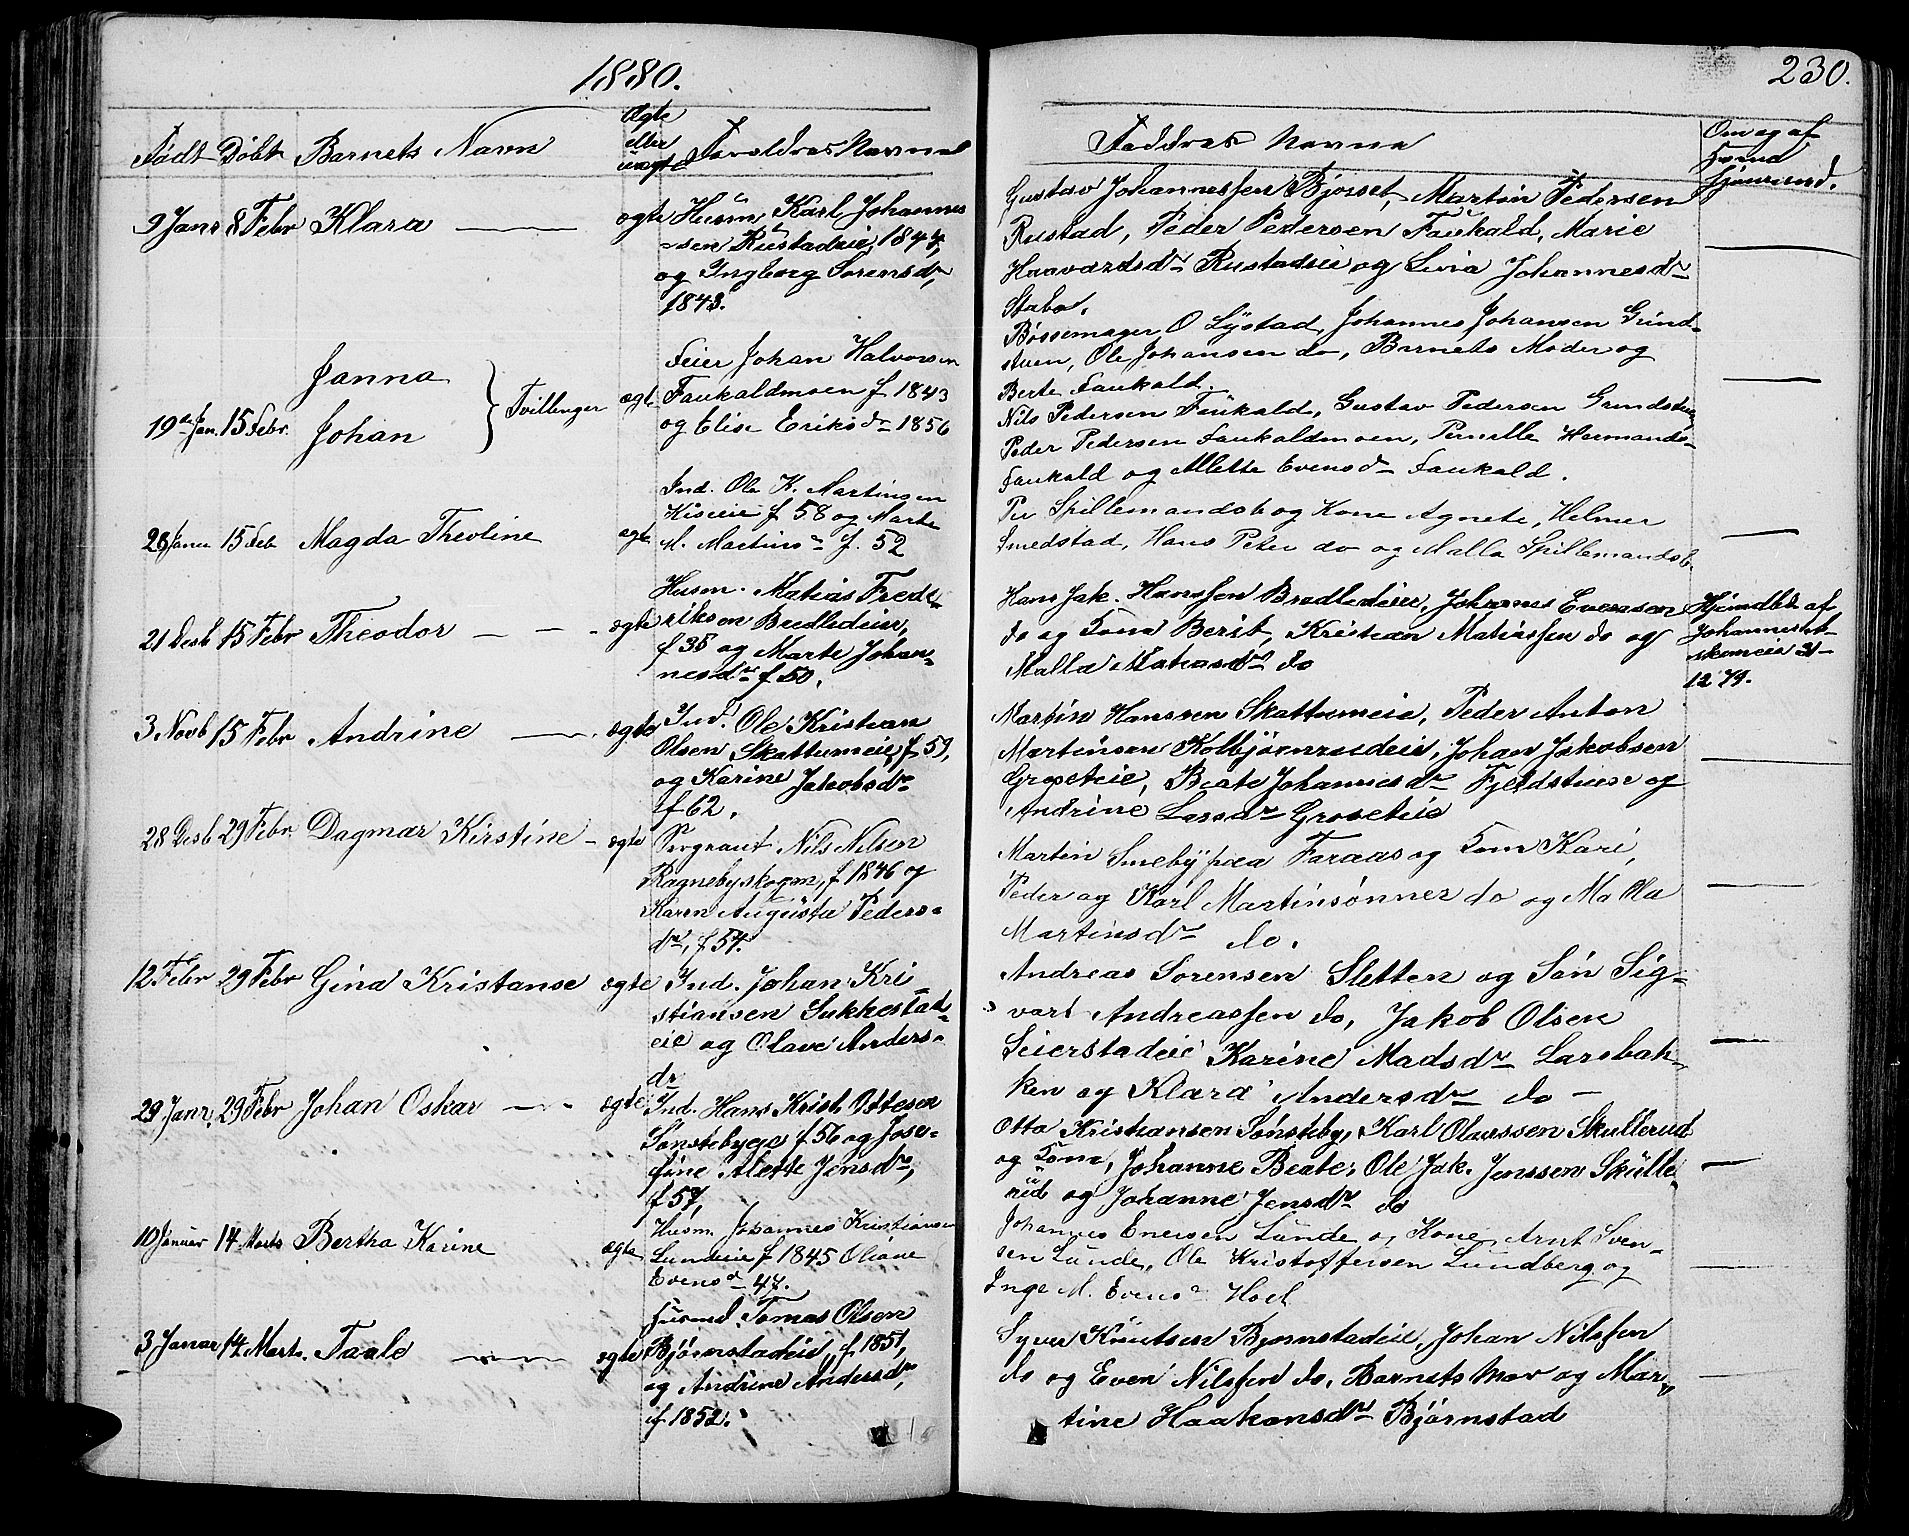 1880.
230.
Født Døbt Barnets Navn Ægte eller uægte Foreldres Navne
Faddres Navne
Om og af hvem hjemmed.
9 Janr 8 Febr Klara ægte
Husm. Karl Johannes
sen Rustadeie, 1844,
og Ingborg Sørensdr
1843.
Gustav Johannessen Bjosset, Martin Pedersen
Rustad, Peder Pedersen Faukald, Marie
Haavardsdr Rustadeie og Livia Johannesdr
Stabo.
19de Jan. 15 Febr.
Janna
Johan
Tvillinger ægt.
Feier Johan Halvorsen
Faukaldmoen f 1843
og Elise Eriksdr 1856
Bøssemager O Lystad, Johannes Johansen Grind-
stuen, Ole Johansen do, Barnets Moder og
Berte Faukald.
Nils Pedersen Faukald, Gustav Pedersen Grindstuen
Peder Pedersen Faukaldmoen, Pernille Hermands-
Faukald og Mette Evensd Faukald.
28 Janu 15 Feb Magda Theoline ægte
Ind. Ole K. Martinsen
Kiseie f 58 og Marte
M. Martinsdr f. 52
Per Spillemandsb og Kone Agnete, Helmer
Smedstad, Hans Peter do og Malla Spillemandsb.
21 Desb 15 Febr Theodor ægte
Husm. Matias Fred-
rikson Bredlideier,
f 38 og Marte Johan-
nesdr f 50.
Hans Jak. Hanssen Bredlideie, Johannes Evensen
do og Kone Berit, Kristian Matiassen do og
Malla Matiasdr do
Hjemdbt af
Johannes
31-
12 79.
3 Novb 15 Febr Andrine ægte
Ind. Ole Kristian
Olsen Skattumeie, f 59,
og Karine Jakobsdr
f 62.
Martin Hanssen Skattumeie, Peder Anton
Martinsen Kolbjørnrudeie, Johan Jakobsen
Groseteie, Beate Johannesdr Fjeldstuese og
Andrine Larsdr Groseteie
28 Desb 29 Febr Dagmar Kirstine ægte
Sergeant Nils Nilsen
Ragnebyskogen, f 1846 og
Karen Augusta Peders-
dr, f 54.
Martin Smeby paa Faraas og Kone Kari,
Peder og Karl Martinsønner do og Malla
Martinsdr do.
12 Febr 29 Febr Gina Kristanse ægte
Ind. Johan Kri
stiansen Sukkestad-
eie og Olave Anders-
dr
Andreas Sorensen Sletten og Søn Sig-
vart Andreassen do, Jakob Olsen
Seierstadeie Karine Madsdr Larsbak-
ken og Klara Andersdr do
29 Janr. 29 Febr Johan Oskar ægte
Ind. Hans Krist. Ottesen
Sønstebyeie f 56 og Jose-
fine Alette Jensdr,
f 57,
Otto Kristiansen Sønsteby, Karl Olaussen Skullerud
og Kone, Johanne Beate, Ole Jak. Jenssen Skulle-
rud og Johanne Jensdr do
10 Januar 14 Marts Bertha Karine ægte
Husm. Johannes Kristiansen
Lundeie f 1845 Oliane
Evensd 47.
Johannes Enersen Lunde og Kone, Arnt Sven-
sen Lunde, Ole Kristoffersen Lundberg og
Inge M. Evensd Hoel
3 Januar 14 Mart. Taale ægte
Husmd. Tomas Olsen
Bjørnstadeie, f 1851,
og Andrine Andersdr,
f 1852.
Syver Knutsen Bjornstadeie, Johan Nilssen
do og Even Nilssen do, Barnets Mor og Mar-
tine Haakonsdr Bjørnstad